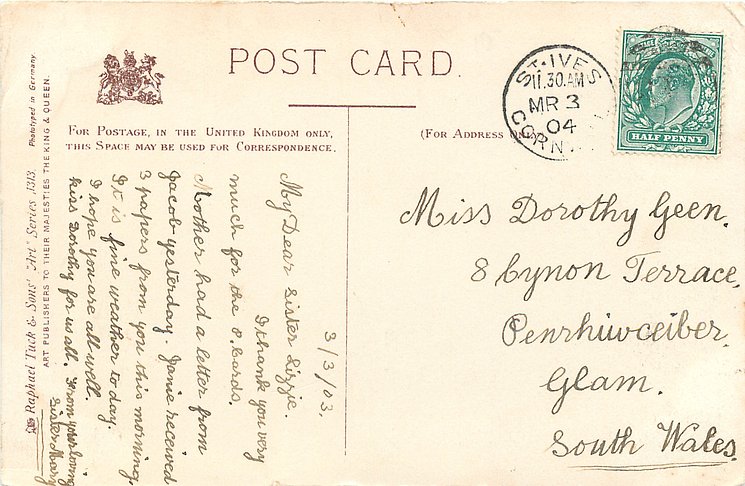 POST CARD.
FOR POSTAGE, IN THE UNITED KINGDOM ONLY,
THIS SPACE MAY BE USED FOR CORRESPONDENCE.
(FOR ADDRESS ONLY)
ST. IVES
11.30.AM
MR 3
04
CORN
HALF PENNY
Miss Dorothy Geen.
8 Cynon Terrace.
Penrhiwceiber.
Glam.
South Wales.
3/3/03.
My Dear Sister Lizzie.
I thank you very
much for the P. Cards.
Mother had a letter from
Jacob yesterday. Janie received
3 papers from you this morning.
It is fine weather to day.
I hope you are all well.
kiss Dorothy for us all. From your loving
Sister Mary
Raphael Tuck & Sons' "Art" Series 1313.
Phototyped in Germany
ART PUBLISHERS TO THEIR MAJESTIES THE KING & QUEEN.